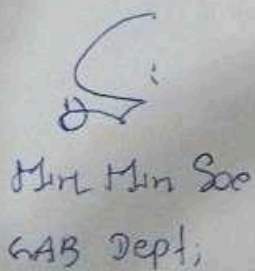 Min Min Soe
GAB Dept;